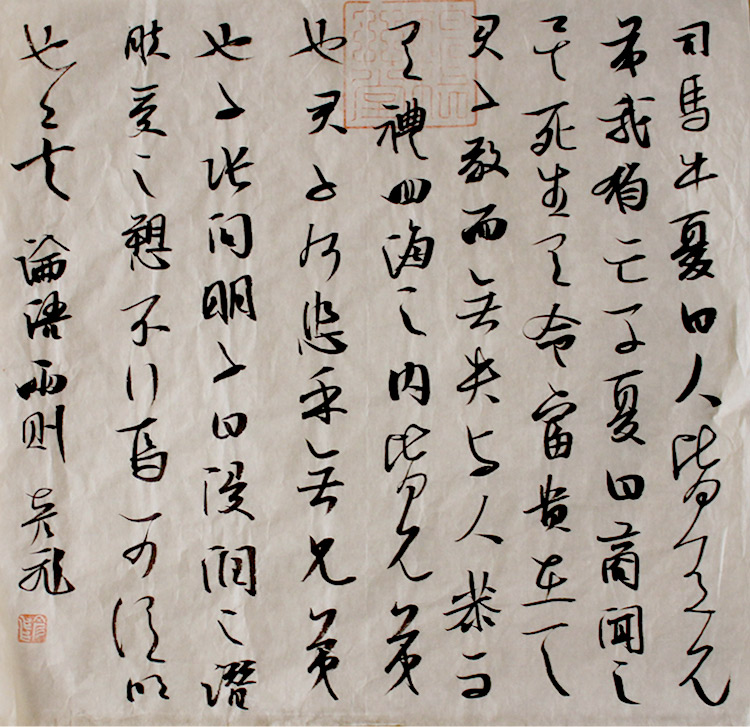 司馬牛憂曰人皆有兄
弟我獨亡子夏曰商聞之
矣死生有命富貴在天
君子敬而無失與人恭而
有禮四海之內皆兄弟
也君子何患乎無兄弟
也子張問明子曰浸潤之譖
膚受之愬不行焉可謂明
也已矣 論語兩則